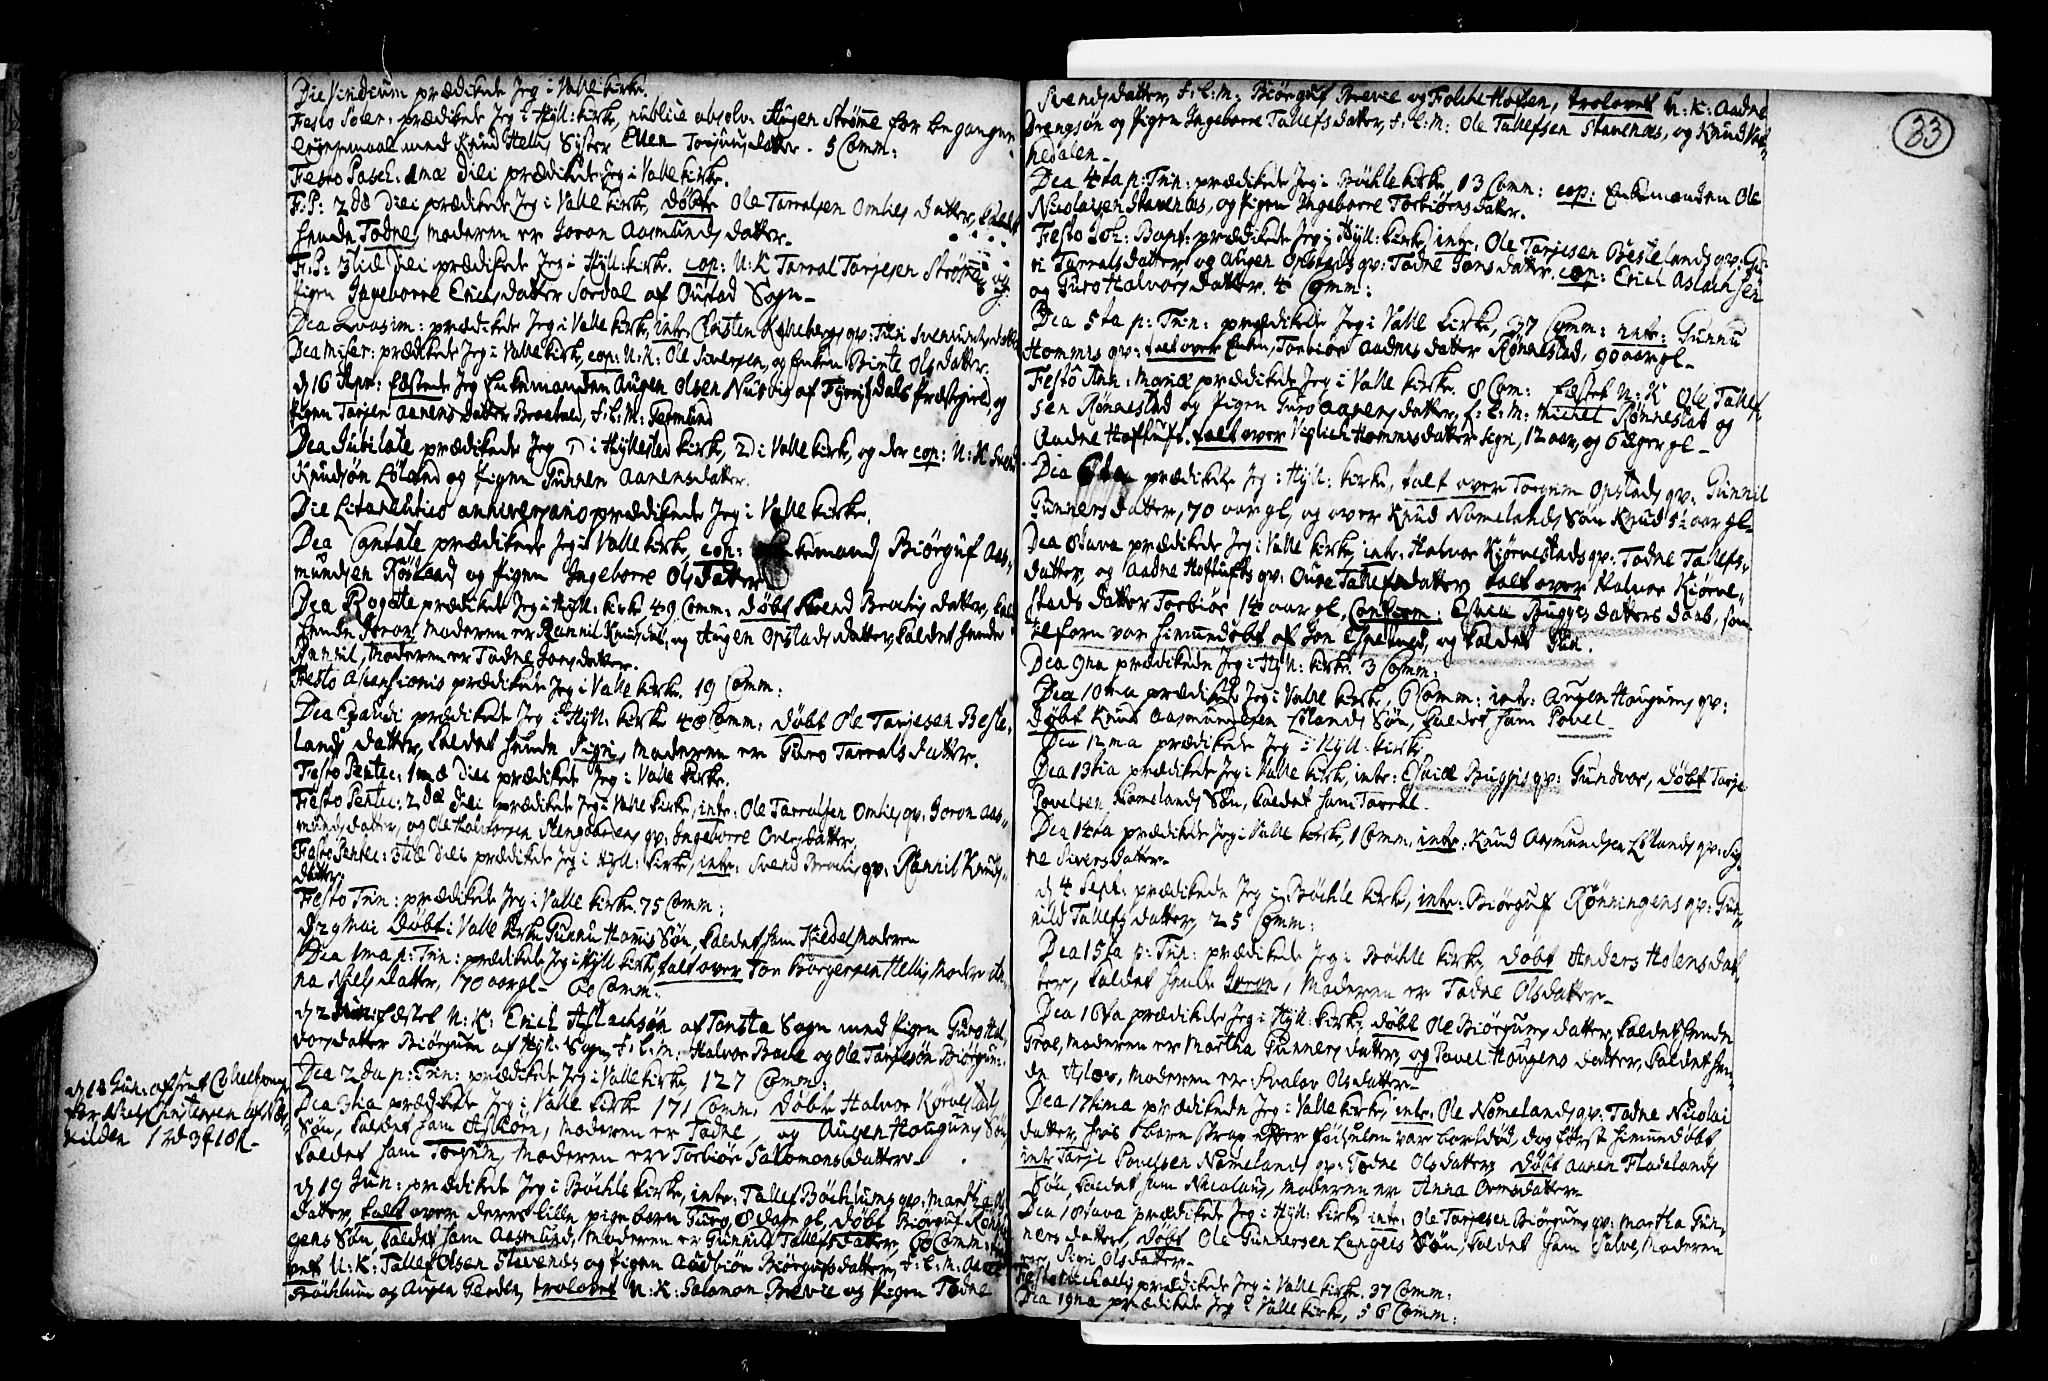 Die Viridium prædikede Jeg i Valle kirke.
Festo Solen: prædikede Jeg i Hyll: kirk, publice absolv: Augen Strømme for begangen
Leyermaal med Knud Helles Syster Ellen Torjusdatter. 5 Comm:
Festo Pasch: 1mæ diei prædikede Jeg i Valle kirke.
F: P: 2dæ diei prædikede Jeg i Valle kirke, døbte Ole Tarralsen Omlies datter, kaldet
hende Todne, moderen er Joron Aasmundsdatter.
F: P: 3tiæ diei prædikede Jeg i Hyll: kirke. cop: U: K Tarral Tarjesen Strømme og
Pigen Ingeborre Erichsdatter Sordal af Oustad Sogn.
Dca Qvasim: prædikede Jeg i Valle kirke, intr: Christen Kelleberg qv: Turi Svenunsdatter
Dca Miser: prædikede Jeg i Valle kirke, cop: U: K: Ole Siversen, og Enken Birte Olsdatter.
d 16 Apr: fæstede Jeg Enkemanden Augen Olsen Nusvig af Fyrrisdals Præstegield, og
Pigen Targen Aanensdatter Broetved, F: L: M: Germund
Dca Jubilate prædikede Jeg 1) i Hyllestad kirke, 2) i Valle kirke, og der cop: U: K Svend
Knudsøn Løland og Pigen Gunner Aanensdatter.
Die Litaneutico anniversario prædikede Jeg i Valle kirke.
Dca Cantate prædikede Jeg i Valle kirke, cop: Enkemand Biørguf Aas-
mundsen Røstad og Pigen Ingeborre Olsdatter
Dca Rogate prædiket Jeg i Hyll: kirke 49 Comm: døbt Svend Broelies datter, kal-
hende Joron, moderen er Rannil Knudsdat, og Augen Opstads datter, kaldet hende
Annil, moderen er Todne Jonsdatter.
Festo Ascensionis prædikede Jeg i Valle kirke. 19 Comm:
Dca Exaudi prædikede Jeg i Hyll: kirke 48 Comm: døbt Ole Tarjesen Beste-
lands datter, kaldet hende Sigri, moderen er Guro Tarrals datter.
Festo Pentec: 1mæ diei prædikede Jeg i Valle kirke.
Festo Pentec: 2dæ diei prædikede Jeg i Valle kirke, intr: Ole Tarralsen Omlies qv: Joron Aas-
munds datter, og Ole Halvorsen qv: Ingeborre Oversdatter
Festo Pentec: 3tiæ diei prædikede Jeg i Hyll: kirke, intr: Svend Broelies qv: Rannil Knuds-
datter.
Festo Trin: prædikede Jeg i Valle kirke. 75 Comm:
d 29 Mai døbt i Valle kirke Gunnu Homis Søn, kaldet ham Kield, moderen
Dca 1ma p: Trin: prædikede Jeg i Hyll kirke, talt over Jon Borgersen Helles Moder An-
na Nielsdatter, 70 aar gl. 60 Comm:
d 2 Jun: fæstet U: K: Erich Aslachsøn af Tonsta Sogn med Pigen Guro Hal-
vorsdatter Biørgum af Hyll: Sogn, F: L: M: Halvor Bache og Ole Tarjesøn Biørgum:
Dca 2da p: Trin: prædikede Jeg i Valle kirke 127 Comm:
Dca 3tia prædikede Jeg i Valle kirke 171 Comm: døbt Halvor Kørvestads
Søn, kaldet ham Asbiørn, moderen er Todne, og Augen Hougums Søn
kaldet ham Torgum, moderen er Torbiør Salomonsdatter.
d 19 Jun: prædikede Jeg i Bøchle kirke, intr: Tallef Bøchlums qv: Martha Ols
datter, talt over deres lille pigebarn Guro, 8 dage gl, døbt Biørguf Rønnin-
gens Søn, kaldet ham Aasmund, moderen er Gunnild Tallefsdatter, 60 Comm:
vet U: K: Tallef Olsen Stavenes og Pigen Audbiør Biørgufsdatter, F: L: M: Aanen
Trøchlum og Augen Gierden, trolovet U: K: Salomon Breive og Pigen Todne
d 18 Jun: afsent Collectpenge
for Niels Christensen
Kilden 1 rd 3 f 18 ſ.
33
Svends datter, F: L: M: Biørguf Breive og Folche Hofsen, trolovet U: K: Aadne
Drengsøn og Pigen Ingeborre Tallefsdatter, F: L: M: Ole Tallefsen Stavenæs, og Knud Vat-
nedalen.
Dca 4ta p: Trin: prædikede Jeg i Bøchle kirke, 13 Comm: cop: Enkemanden Ole
Nicolaisen Stavenæs, og Pigen Ingeborre Torbiørnsdatter.
Festo Joh: Bapt: prædikede Jeg i Hyll: kirke, intr: Ole Tarjesen Bestelands qv: Gu-
ri Tarralsdatter, og Augen Opstads qv: Todne Jonsdatter. cop: Erich Aslachsen
og Guro Halvorsdatter. 4 Comm:
Dca 5ta p: Trin: prædikede Jeg i Valle kirke, 37 Comm: intr: Gunnu
Hommes qv: talt over Enken, Torbiør Aadnes datter Rønnestad, 90 aar gl.
Festo Ann: Mariæ prædikede Jeg i Valle kirke. 8 Com: fæstet U: K Ole Tallef-
sen Rønnestad og Pigen Guro Aanensdatter, f: L: M: Michel Rønnestad og
Aadne Hoftuft. talt over Viglich Hommes datter Sign, 12 aar, og 6 uger gl.
Dca prædikede Jeg i Hyll: kirke, talt over Torgrim Opstads qv: Gunnil
Gunners datter, 70 aar gl, og over Knud Nomelands Søn Knud 5½ aar gl.
Dca 8tava prædikede Jeg i Valle kirke, intr: Halvor Kiørvestads qv: Todne Tallefs-
datter, og Aadne Hoftufts qv: Ouse Tallefsdatter, talt over Halvor Kiørve-
stads datter Torbiør 14 aar gl, Confirm: Esaia Bugges datters daab, som
tilforn var hiemmedøbt af Jon Espetved, og kaldet Gun.
Dca 9na prædikede Jeg i Hyll: kirke. 3 Comm:
Dca 10ma prædikede Jeg i Valle kirke, 6 Comm: intr: Augen Hougums qv:
Døbt Knud Aasmundsen Lølands Søn, kaldet ham Povel.
Dca 12ma prædikede Jeg i Hyll: kirke
Dca 13tia prædikede Jeg i Valle kirke, intr: Esaiæ Bugges qv: Gundvor, døbt Tarje
Povelsen Nomelands Søn, kaldet ham Tarral.
Dca 14ta prædikede Jeg i Valle kirke, 1 Comm: intr: Knud Aasmundsen Lølands qv: Sig-
ne Siversdatter.
d 4 Sept: prædikede Jeg i Bøchle kirke, intr: Biørguf Rønningens qv: Gun-
nild Tallefs datter, 25 Comm:
Dca 15ta p: Trin: prædikede Jeg i Bøchle kirke, døbt Anders Holens dat-
ter, kaldet hende Joron, moderen er Todne Olsdatter.
Dca 16ta prædikede Jeg i Hyll: kirke, døbt Ole Biørgums datter, kaldet hende
Groe, moderen er Martha Gunners datter, og Povel Hougens datter, kaldet hen-
de Aslov, moderen er Svalov Olsdatter.
Dca 17tima prædikede Jeg i Valle kirke, intr: Ole Nomelands qv: Todne Nicolai
datter, hvis barn strax efter fødselen var bortdød, dog først hiemmedøbt
intr: Tarje Povelsen Nomelands qv: Todne Olsdatter, døbt Aanen Flatelands
Søn, kaldet ham Nicolaus, moderen er Anna Ormsdatter.
Dca 18tava prædikede Jeg i Hyll: kirke intr: Ole Tarjesen Biørgums qv: Martha Gun-
ners datter, døbt Ole Gunnersen Langeis Søn, kaldet ham Salve, moderen
er Sigri Olsdatter.
Festo Michaelis prædikede Jeg i Valle kirke. 37 Comm:
Dca 19na prædikede Jeg i Valle kirke, 56 Comm: